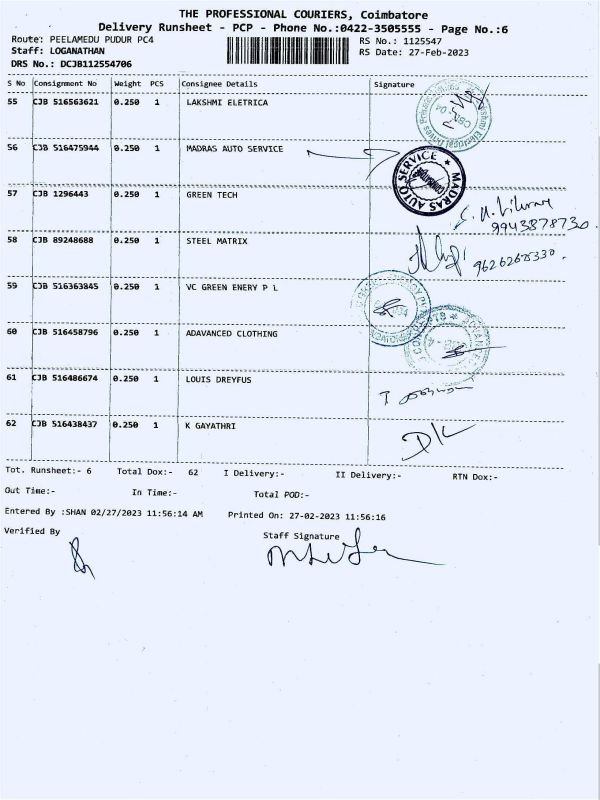 THE PROFESSIONAL COURIERS, Coimbatore
Delivery Runsheet - PCP - Phone No.:0422-3505555 - Page No.:6
Route: PEELAMEDU PUDUR PC4 RS No.: 1125547
Staff: LOGANATHAN RS Date: 27-Feb-2023
DRS No.: DCJB112554706
S No Consignment No Weight PCS Consignee Details Signature
55 CJB 516563621 0.250 1 LAKSHMI ELETRICA
56 CJB 516475944 0.250 1 MADRAS AUTO SERVICE
MADRAS AUTO SERVICE
57 CJB 1296443 0.250 1 GREEN TECH
9943878730
58 CJB 89248688 0.250 1 STEEL MATRIX
59 CJB 516363845 0.250 1 VC GREEN ENERY P L
60 CJB 516458796 0.250 1 ADAVANCED CLOTHING
61 CJB 516486674 0.250 1 LOUIS DREYFUS
62 CJB 516438437 0.250 1 K GAYATHRI
Tot. Runsheet:- 6 Total Dox:- 62 I Delivery:- II Delivery:- RTN Dox:-
Out Time:- In Time:- Total POD:-
Entered By :SHAN 02/27/2023 11:56:14 AM Printed On: 27-02-2023 11:56:16
Verified By Staff Signature